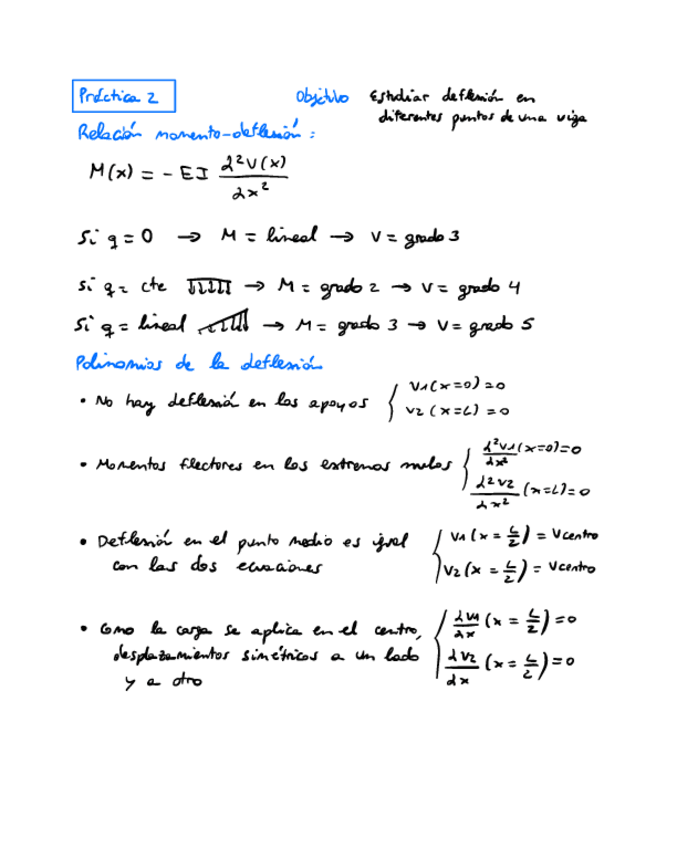 Práctica 2
Objetivo Estudiar deflexión en
diferentes puntos de una viga
Relación momento-deflexión:
M(x) = - EI d²v(x)/dx²
Si q = 0 → M = lineal → v = grado 3
si q = cte → M = grado 2 → v = grado 4
si q = lineal → M = grado 3 → v = grado 5
Polinomios de la deflexión
• No hay deflexión en los apoyos { v1(x=0)=0
v2(x=L)=0
• Momentos flectores en los extremos nulos { d²v1/dx² (x=0)=0
d²v2/dx² (x=L)=0
• Deflexión en el punto medio es igual { v1(x = L/2) = vcentro
con las dos ecuaciones v2(x = L/2) = vcentro
• Como la carga se aplica en el centro, { dv1/dx (x = L/2) = 0
desplazamientos simétricos a un lado dv2/dx (x = L/2) = 0
y a otro